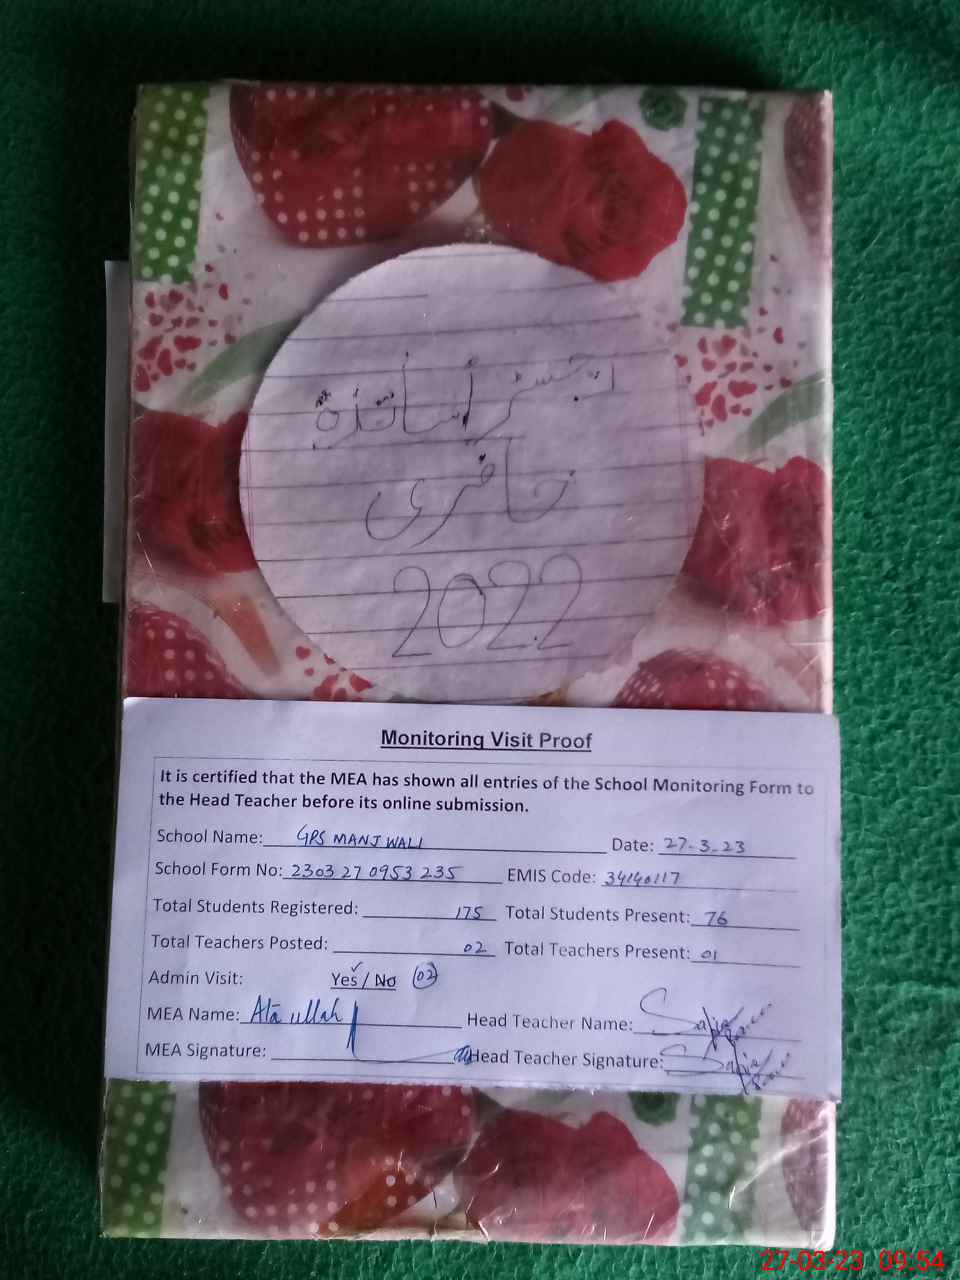 رجسٹر اساتذہ
حاضری
2022
Monitoring Visit Proof
It is certified that the MEA has shown all entries of the School Monitoring Form to
the Head Teacher before its online submission.
School Name: GPS MANJWALI Date: 27-3-23
School Form No: 2303 27 0953 235 EMIS Code: 34140117
Total Students Registered: 175 Total Students Present: 76
Total Teachers Posted: 02 Total Teachers Present: 01
Admin Visit: Yes / No 02
MEA Name: Ata ullah Head Teacher Name:
MEA Signature: Head Teacher Signature:
27-03-23 09:54